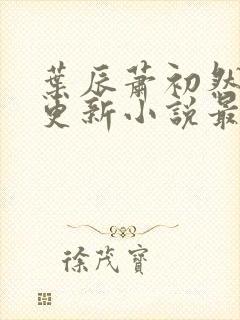 葉辰蕭初然
更新小說最
徐茂寶